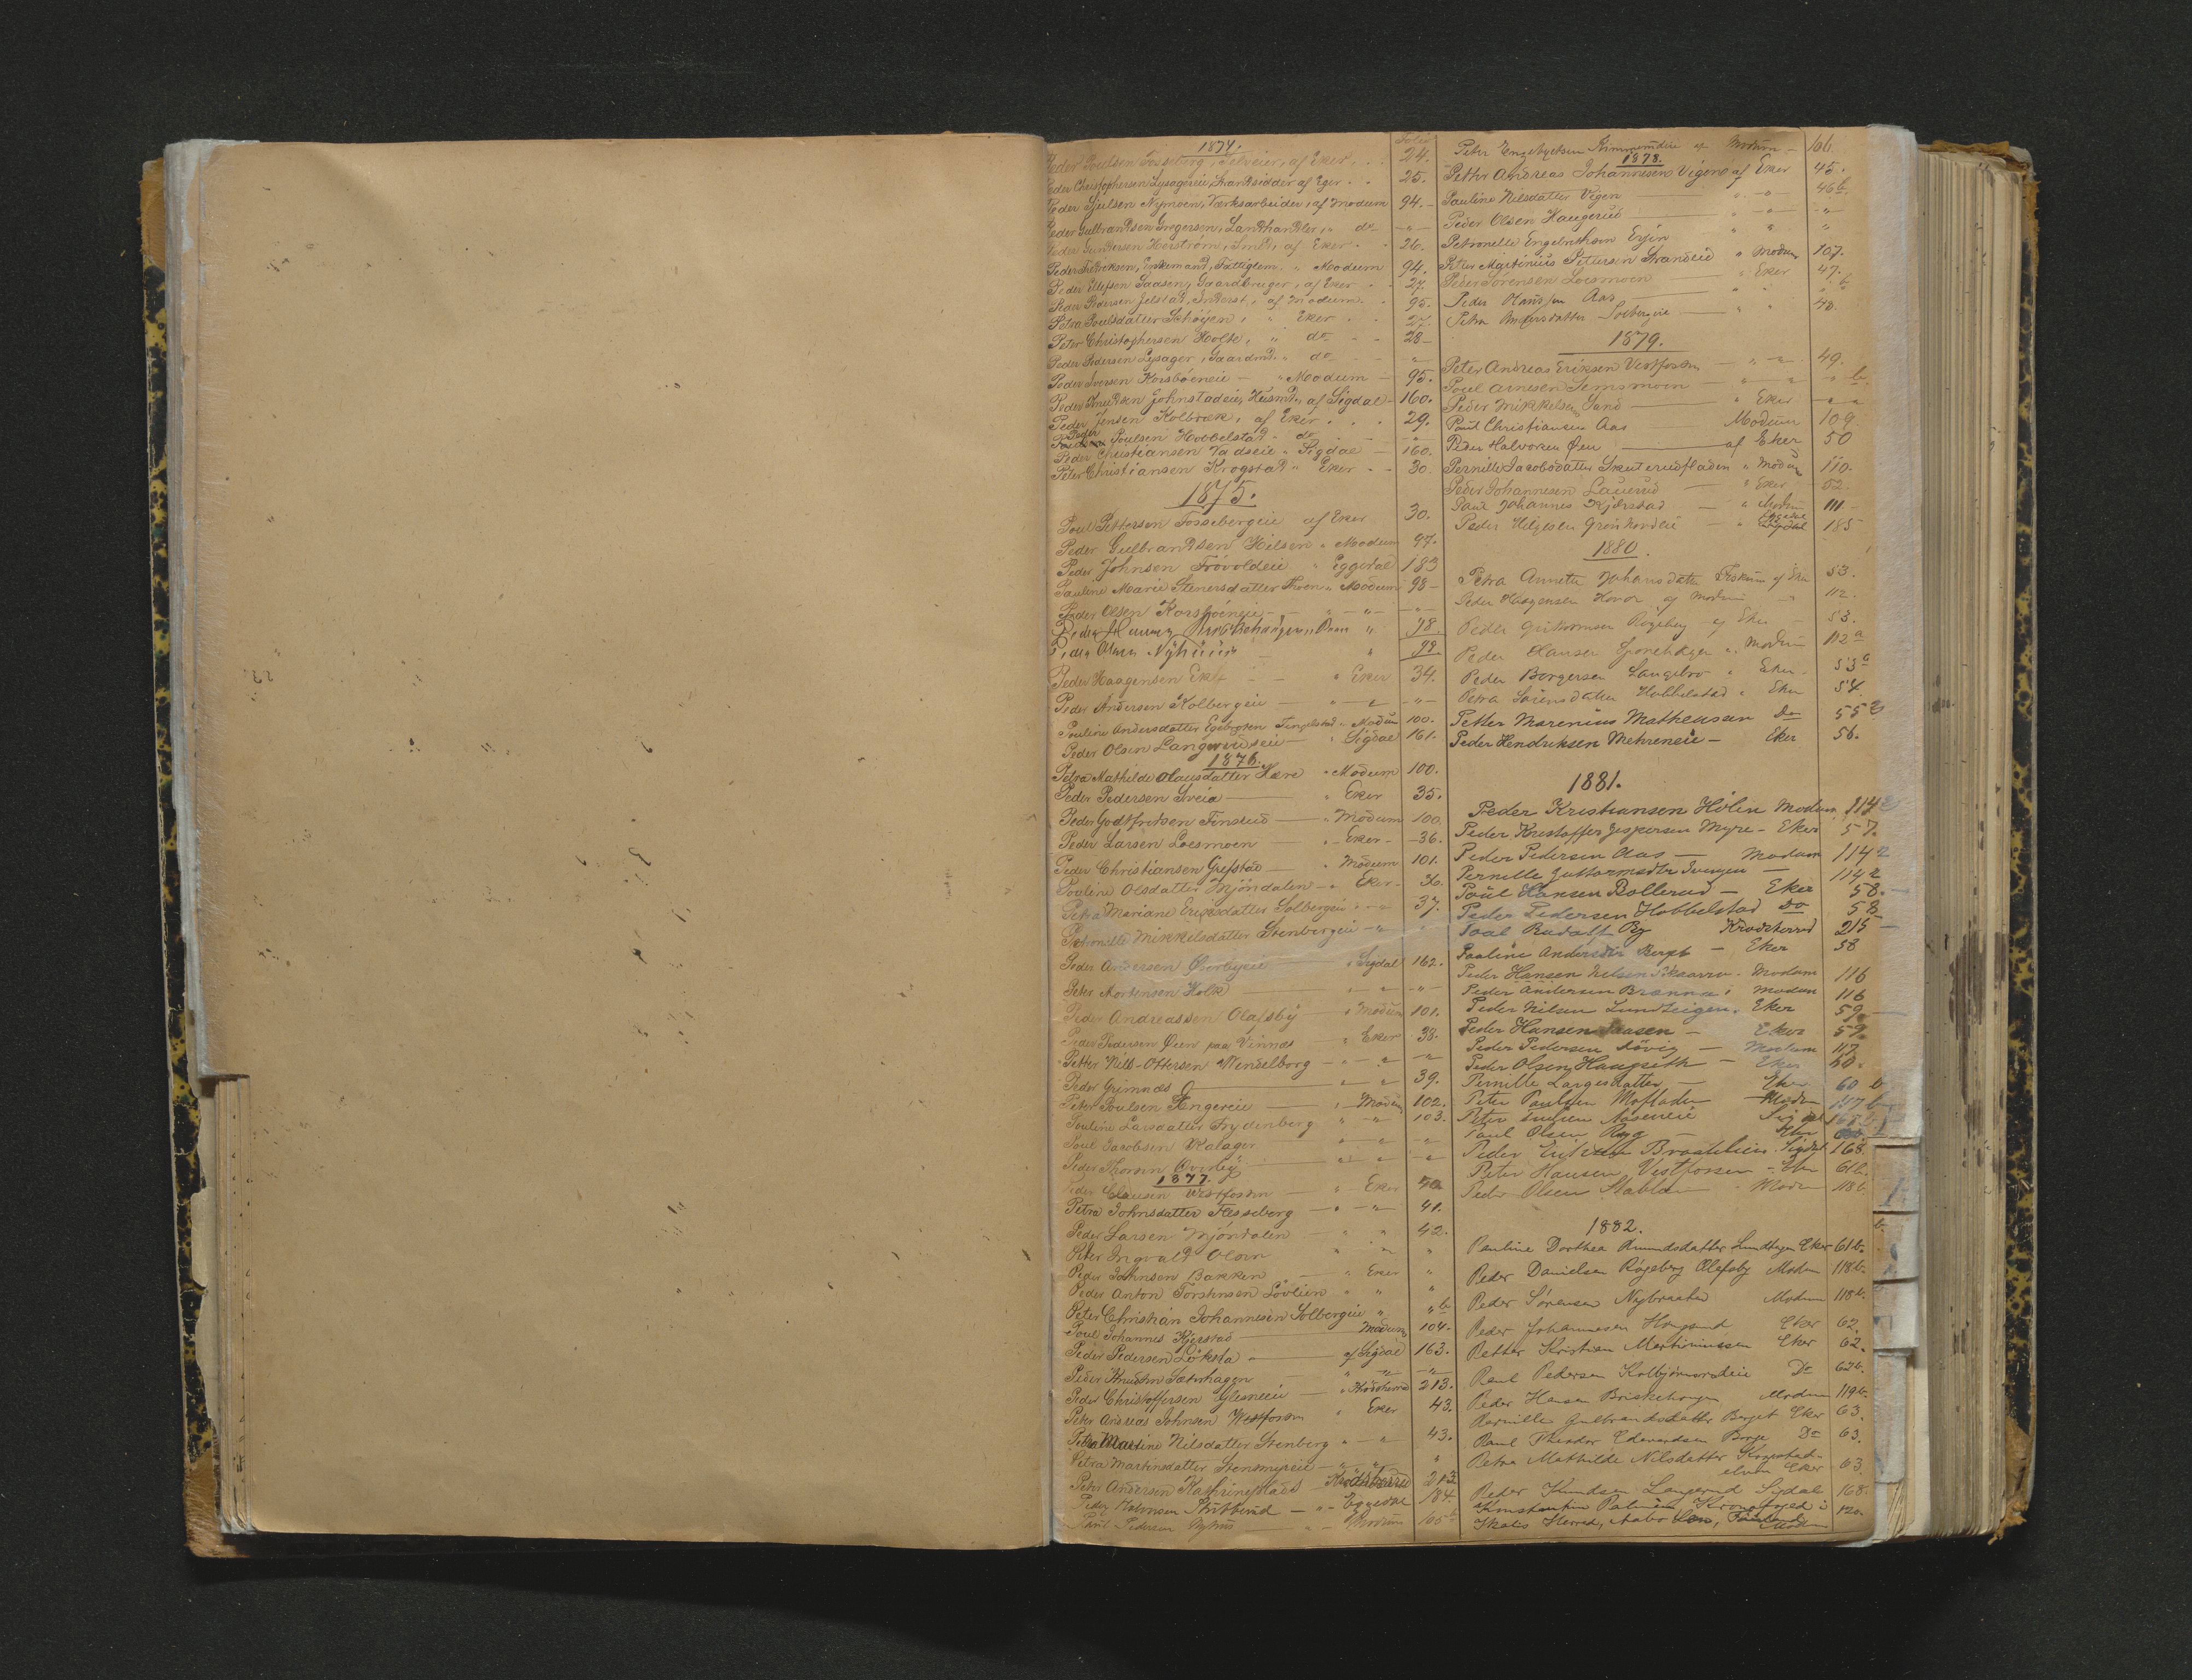 Folio
1874.
Peder Poulsen Fosseberg, Selveier, af Eker, 24.
Peder Christophersen Lysagereie, Strandsidder af Eger 25.
Peder Hjulsen Nymoen, Værksarbeider, af Modum 94.
Peder Gulbrandsen Gregersen, Landhandler, " do - " -
Peder Gundersen Horström, Smed, af Eker 26.
Peder Fredriksen, Enkemand, Fattiglem " Modum 94.
Peder Ellefsen Saasen, Gaardbruger, af Eker 27.
Peder Pedersen Jelstad, Inderst, af Modum 95.
Petra Poulsdatter " Eker 27
Peter Christophersen Holte, " do 28
Peder Pedersen Lysager, Gaardmd. " do "
Peder Iversen Korsbøeneie " Modum 95.
Peder Knudsen Johnstadeie, Husmd. af Sigdal 160.
Peder Jensen Kolbræk, af Eker 29.
Peder Poulsen Hobbelstad " do - " -
Peder Christiansen " Sigdal 160.
Peter Christiansen Krogstad " Eker 30.
1875.
Poul Pettersen Fossebergeie af Eker 30.
Peder Gulbrandsen Hilsen " Modum 97.
Peder Johnsen Frövoldeie " Eggedal 183
Pauline Marie Stenersdatter Moen " Modum 98
Peder Olsen Korsbøeneie - " - " - - " -
Peder 98.
Peder Olsen Nyhuus " 99
Peder Haagensen Eke " Eker 34.
Peder Andersen Kolbergeie - " - " -
Pauline Andersdatter Egebroten Tingelstad " Modum 100.
Peder Olsen Langerudseie " Sigdal 161.
1876.
Petra Mathilde Olausdatter Hære " Modum 100.
Peder Pedersen Sveia " Eker 35.
Peder Godtfriksen Finslud " Modum 100
Peder Larsen Loesmoen " Eker 36.
Peder Christiansen Grefstad " Modum 101.
Pouline Olsdatter Mjöndalen " Eker 36.
Petra Mariane Ericsdatter Solbergeie - " - 37.
Petronille Mikkelsdatter Stenbergeie - " - "
Peder Andersen Överbyeie " Sigdal 162.
Peter Mortensen Holte - " -
Peder Andreassen Olafsby " Modum 101.
Peder Pedersen Øen paa Vinnæs " Eker 38.
Petter Nill-Ottersen Wendelborg - " - " -
Peder Grimnæs 39.
Peter Poulsen Angereie " Modum 102.
Pouline Larsdatter Frydenberg " - " - 103.
Poul Jacobsen Kalager " - " -
Peder Thoresen Överby " - " -
1877.
Peder Clausen Vestfossen " Eker 40
Petra Johnsdatter Flesseberg - " - 41.
Peder Larsen Mjöndalen " " 42.
Peter Ingvald Olsen " " "
Peder Johnsen Bakken " Eker "
Peder Anton Torstensen Lövlien " " "
Peter Christian Johannesen Solbergeie " " b
Poul Johannes Kjerstad Modum 104.
Peder Pedersen Löksta af Sigdal 163.
Peder Knudsen Sæterhagen - " - - " -
Peder Christoffersen Glesneeie " Krödsherred 213.
Peter Andreas Johnsen Westfossen " Eker 43.
Petra Martine Nilsdatter Stenberg - " - 43.
Petra Martinsdatter Stensmyreie - " - "
Peter Andersen Kathrineplads Krödsherred 213
Peder Eggedal 184.
Poul Pedersen Nyhus Modum 105 b
Peter Engebretsen af Modum 106
1878.
Petter Andreas Johannesen Vigen af Eker 45.
Pauline Nilsdatter Vegen - " - 46 b.
Peder Olsen Haugerud " - " - - " -
Petronelle Engebrethsen " " "
Petter Martinius Pettersen Strandeid " Modum 107.
Peder Sörensen Loesmoen " Eker 47.
Peder Hanssen Aas " " b
Petra Andersdatter Solbergeie " " 48.
1879.
Peter Andreas Eriksen Vestfossen - " - 49.
Poul Arnesen Semsmoen " " b.
Peder Mikkelsen Sand " Eker - " -
Paul Christiansen Aas Modum 109
Peder Halvorsen Øen af Eker 50
Pernille Jacobsdatter Skuterudfladen " Modum 110.
Peder Johannesen Lauerud " Eker 52.
Paul Johannes Kjærstad " Modum 111
Peder Helgesen Eggedal 185
1880.
Petra Annette Johansdatter Fiskum af Eker 53.
Peder Haagensen Hovde af Modum 112.
Peder Guttormsen Aageberg af Eker 53.
Peder Hansen " Modum 112 a
Peder Borgersen Langebro " Eker 53 b
Petra Sörensdatter Hobbelstad " Eker 54.
Petter Marenius Matheussen Do 55 b
Peder Hendriksen Mehreneie - Eker 56.
1881.
Peder Kristiansen Hölen Modum 114 a
Peder Kristoffer Jespersen Myre - Eker 57.
Peder Pedersen Aas - Modum 114 a
Pernille Guttormsdtr - 114 a
Poul Hansen Bollerud - Eker 58.
Peder Pedersen Hobbelstad Do 58
Poal Rudolf By Krödsherred 215
Pauline Andersdtr Berget - Eker 58
Peder Hansen Nilsen . Modum 116
Peder Andersen Brænna i Modum 116
Peder Nilsen Lundteigen. Eker 59
Peder Hansen Saasen - Eker 59.
Peder Pedersen Lövig - Modum 117
Peder Olsen Haugseth - Eker 60.
Pernille Largesdatter - Eker 60 b
Peter Paulsen Moflaten - Modum 117 b
Peter Sigdal 167 b
Paul Olsen Ryg - Eker
Peder Eriksen Braatelien - Sigdal 168.
Peter Hansen Vestfossen - Eker 61 b.
Peder Olsen Stablan Modum 118 b
1882.
Pauline Dorthea Amundsdatter Lundteigen Eker 61 b.
Peder Danielsen Rögeberg Olafsby Modum 118 b.
Peder Sörensen Nybraaten Modum 118 b.
Peder Johannesen Hougsund Eker 62.
Petter Kristian Martiniussen Eker 62.
Paul Pedersen Kolbjörnsrudeie Do 62 b.
Peder Hansen Briskehagen Modum 119 b.
Pernille Gulbrandsdatter Berget Eker 63.
Paul Theodor Edvardsen Borge Do 63.
Petra Mathilde Nilsdatter Krogstad-
elven Eker 63
Peder Knudsen Langerud Sigdal 168.
Konstantin Palmén Kronofoged i
Ikalis Herred, Aabo Len, Finland 120.
Modum